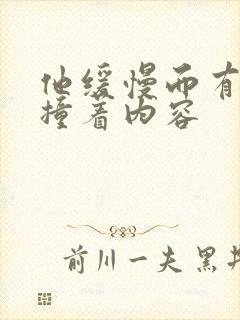 他缓慢而有
撞着内容
前川一夫 黑